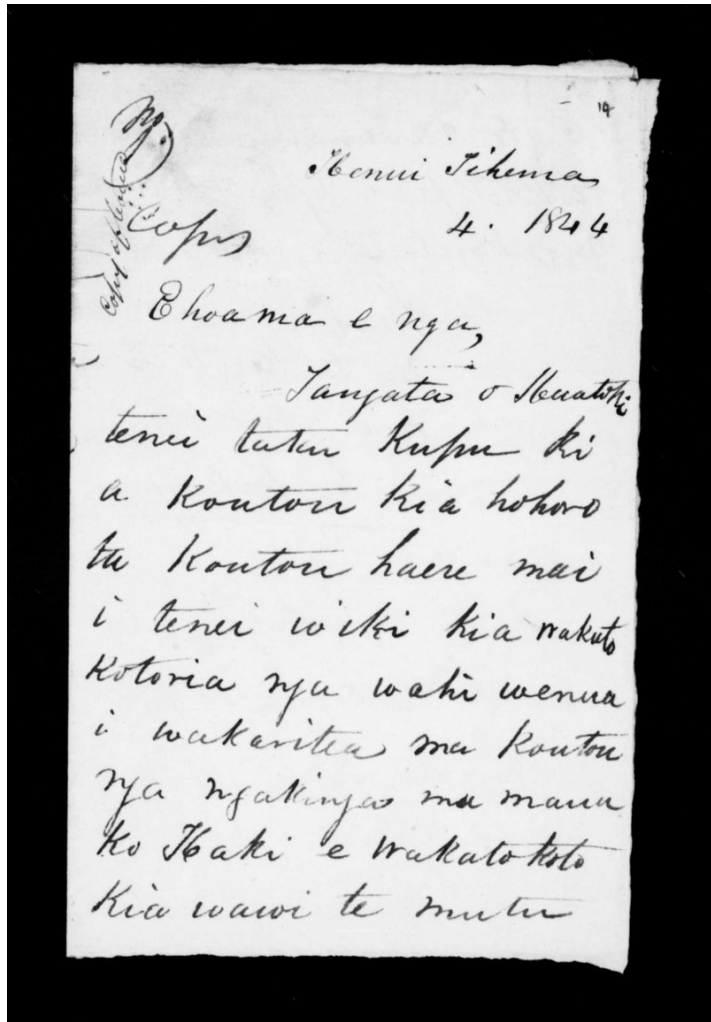 No.
Copy of Letter
14
Henui Tihema
4. 1844
Copy
Ehoama e nga,
Tangata o Huatoki
tenei tatu Kupu ki
a Koutou Kia hohoro
tu Koutou haere mai
i tenei wiki kia wakato
kotoria nga wahi wenua
i wakaritea ma Koutou
nga ngakinga ma maua
ko Haki e wakatokoto
Kia wawi te mutu